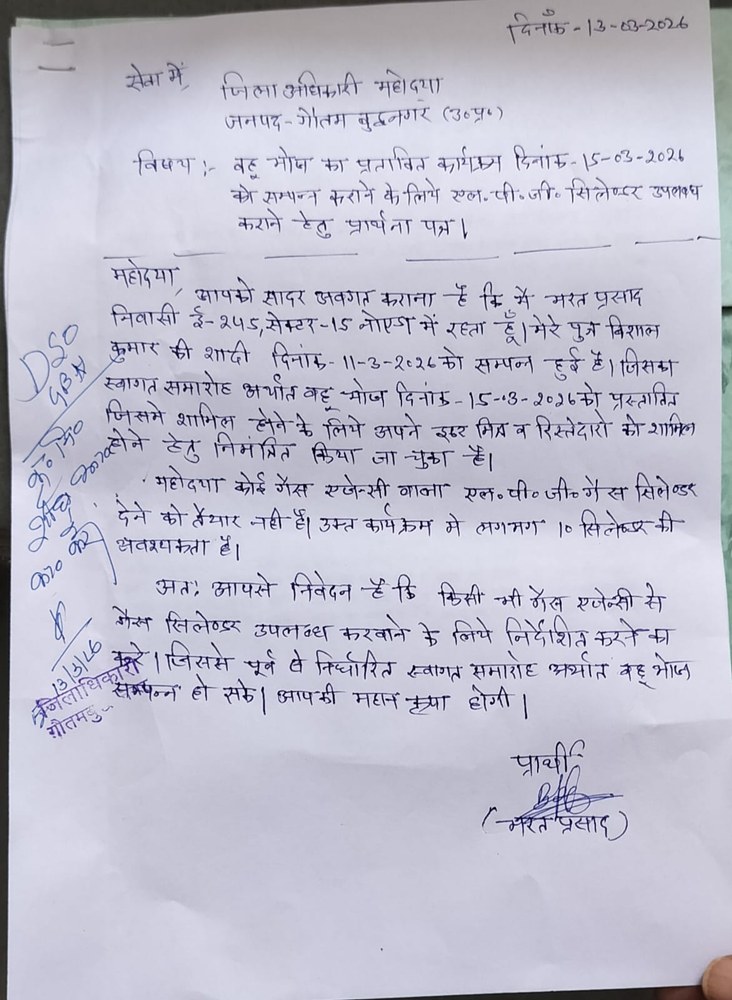 दिनाँक - 13-03-2026
सेवा में,
जिला अधिकारी महोदया
जनपद - गौतम बुद्धनगर (उ०प्र०)
विषय :- वहू भोज का प्रतावित कार्यक्रम दिनांक - 15-03-2026
को सम्पन्न कराने के लिये एल०पी०जी० सिलेण्डर उपलब्ध
कराने हेतु प्रार्थना पत्र।
महोदया,
आपको सादर अवगत कराना है कि मैं भरत प्रसाद
निवासी ई-245, सेक्टर-15 नोएडा में रहता हूँ। मेरे पुत्र विशाल
कुमार की शादी दिनांक - 11-3-2026 को सम्पन्न हुई है। जिसका
स्वागत समारोह अर्थात वहू भोज दिनांक - 15-03-2026 को प्रस्तावित
जिसमे शामिल होने के लिये अपने इष्ट मित्र व रिस्तेदारो को शामिल
होने हेतु निमंत्रित किया जा चुका है।
महोदया कोई गैस एजेन्सी वाला एल०पी०जी० गैस सिलेण्डर
देने को तैयार नही है। उक्त कार्यक्रम मे लगभग 10 सिलेण्डर की
अवश्यकता है।
अतः आपसे निवेदन है कि किसी भी गैस एजेन्सी से
गैस सिलेण्डर उपलब्ध करवाने के लिये निर्देशित करने का
करे। जिससे पूर्व से निर्धारित स्वागत समारोह अर्थात वहू भोज
सम्पन्न हो सके। आपकी महान कृपा होगी।
प्रार्थी
(भरत प्रसाद)
DSO
GBN
13/3/26
जिलाधिकारी